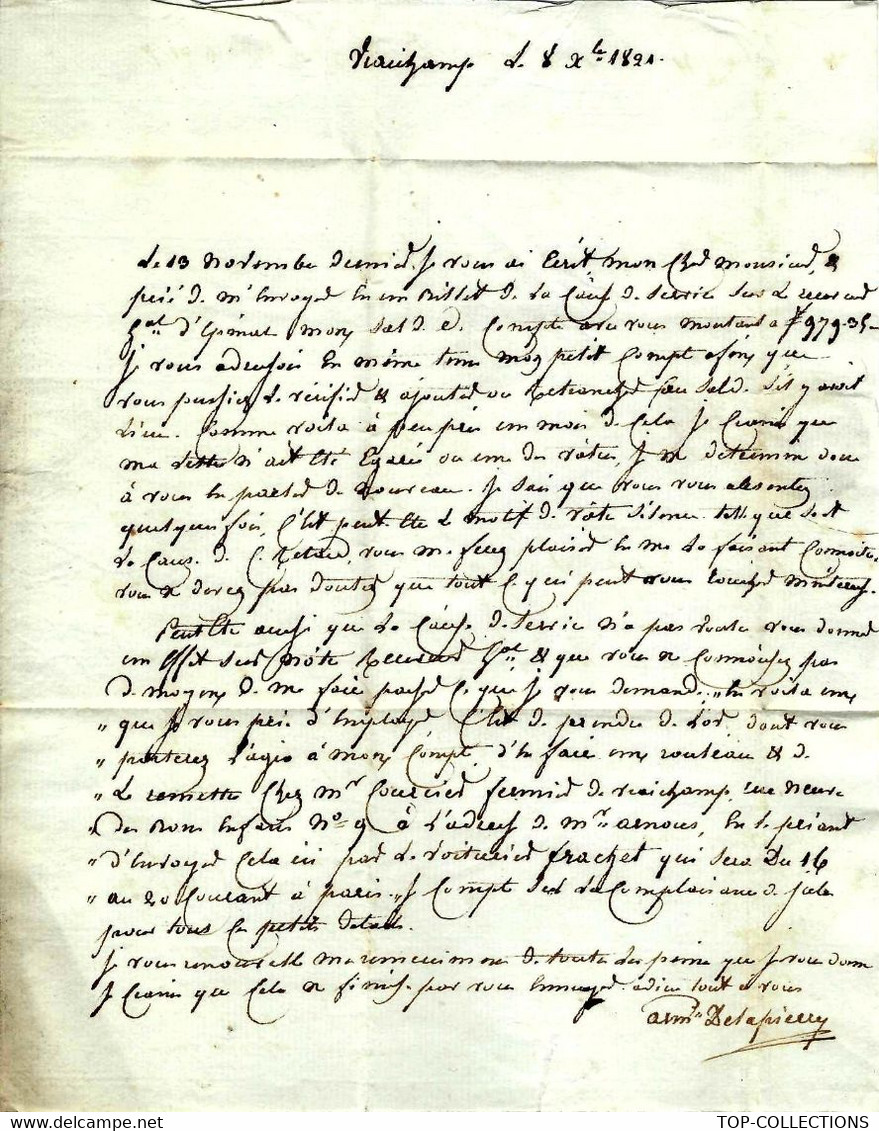 Vraichamp Le 8 Xbre 1821.
Le 13 Novembre dernier, Je vous ai Ecrit, mon Cher Monsieur, &
prié de m'Envoyer En un Billet de La Caisse de Service sur Le receveur
Gal d'Epinal mon solde de Compte avec vous montant a F 979.35
Je vous adressois En même tems mon petit Compte afin que
vous pussiez Le vérifier & ajouter ou Retrancher au solde s'il y avoit
Lieu. Comme voila à peu près un mois de Cela Je Crains que
ma Lettre n'ait Eté Egarée ou une des votres, Je me determine donc
à vous En parler de nouveau. Je sais que vous vous absentez
quelques fois, C'Est peut Etre Le motif de votre silence. telle que soit
La Cause de Ce Retard, vous me ferez plaisir En me La faisant Connoitre
vous ne devez pas douter que tout Ce qui peut vous toucher m'intéresse.
Peut Etre aussi que La Caisse de Service n'a pas voulu vous donner
un Effet sur notre Receveur Gal & que vous ne Connoissez pas
de moyen de me faire passer Ce que Je vous demande. En voila un
" que Je vous prie d'Employer C'Est de prendre de L'or dont vous
" porterez L'agio à mon Compte, d'En faire un rouleau & de
" Le remettre Chez Mr Courcier fermier de Vraichamp, rue Neuve
" des Bons Enfans No 9 à L'adresse de Mr arnous, En Le priant
" d'Envoyer Cela ici par Le Voiturier frachet qui sera Du 16
" au 20 Courant à paris. Je Compte sur La Complaisance de Jules
pour tous Ces petits details.
Je vous renouvelle mes remerciemens de toutes Les peines que Je vous donne
Je Crains que Cela ne finisse par vous Ennuyer. adieu tout à vous
armd Delapierre
TOP-COLLECTIONS